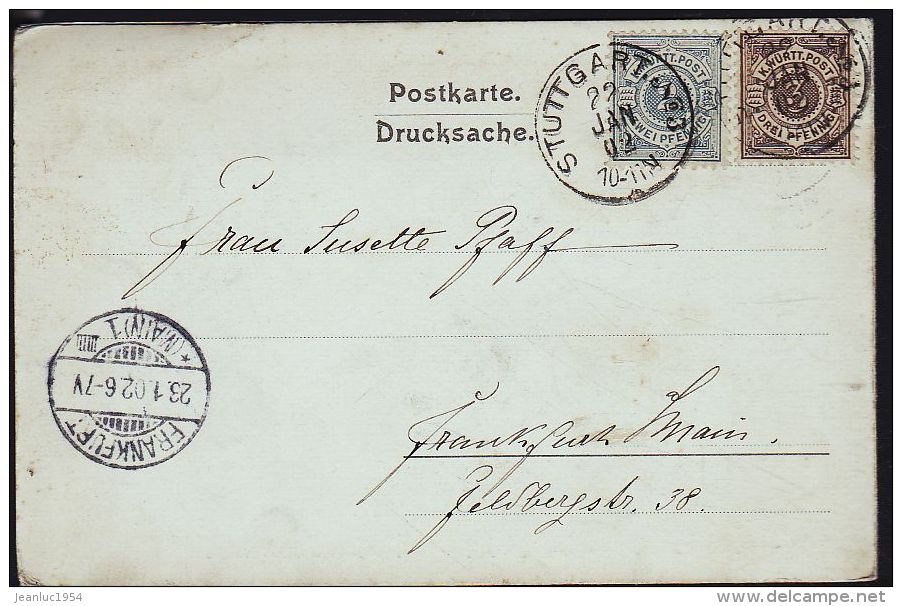 Postkarte.
Drucksache.
STUTTGART
22
JAN
02
10-11N
K.WÜRTT.POST
ZWEI PFENNIG
K.WÜRTT.POST
3
DREI PFENNIG
Frau Susette Pfaff
FRANKFURT
23.1.02.6-7V
*(MAIN)1
Frankfurt Main.
Feldbergstr. 38.
jeanluc1954
www.delcampe.net